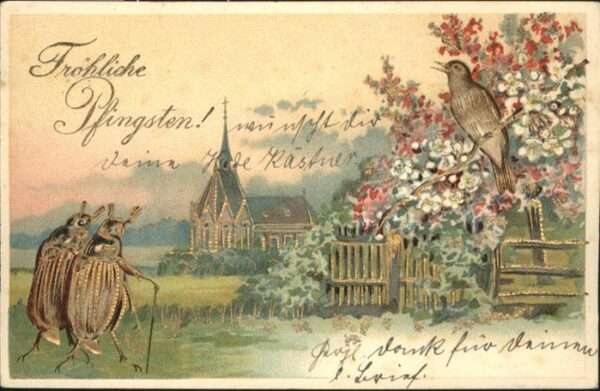 Fröhliche
Pfingsten! wünscht dir
deine Kästner
Herzl. dank für deinen
l. Brief.